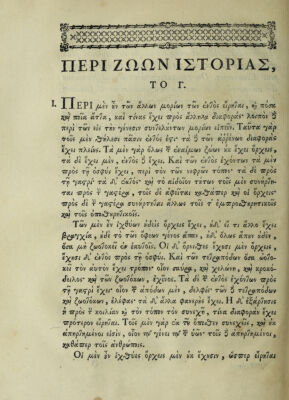 ΠΕΡΙ ΖΩΩΝ ΙΣΤΟΡΙΑΣ,
ΤΟ Γ.
I. ΠΕΡΙ μὲν ὖν τῶν ἄλλων μορίων τῶν ἐντὸς εἴρηται, ϗ πόσα
ϗ ποῖα ἄττα, καὶ τίνας ἔχει πρὸς ἄλληλα διαφοράς· λοιπὸν δὲ
περὶ τῶν εἰς τὴν γένεσιν συντελούντων μορίων εἰπεῖν. Ταῦτα γὰρ
τοῖς μὲν θήλεσιν πᾶσιν ἐντός ἐστι· τὰ δὲ τῶν ἀῤῥένων διαφορὰς
ἔχει πλείους. Τὰ μὲν γὰρ ὅλως τῶν ἐναίμων ζώων ἐκ ἔχει ὄρχεις,
τὰ δὲ ἔχει μὲν, ἐντὸς δὲ ἔχει. Καὶ τῶν ἐντὸς ἐχόντων τὰ μὲν
πρὸς τῇ ὀσφύϊ ἔχει, περὶ τὸν τῶν νεφρῶν τόπον· τὰ δὲ πρὸς
τῇ γαστρί· τὰ δ' ἐκτός· ϗ τὸ αἰδοῖον τούτων τοῖς μὲν συνήρτη-
ται πρὸς τὴν γαστέρα, τοῖς δὲ ἀφεῖται καθάπερ ϗ οἱ ὄρχεις·
πρὸς δὲ τὴν γαστέρα συνήρτηται ἄλλως τοῖς τ' ἐμπροσθουρητικοῖς
ϗ τοῖς ὀπισθουρητικοῖς.
Τῶν μὲν ὖν ἰχθύων ἐδεὶς ὄρχεις ἔχει, ἐδ' εἴ τι ἄλλο ἔχει
βράγχια, ἐδὲ τὸ τῶν ὄφεων γένος ἅπαν, ἐδ' ὅλως ἄπουν ἐδὲν,
ὅσα μὴ ζωοτοκεῖ ἐν ἑαυτοῖς. Οἱ δ' ὄρνιθες ἔχουσι μὲν ὄρχεις,
ἔχουσι δ' ἐντὸς πρὸς τῇ ὀσφύϊ. Καὶ τῶν τετραπόδων ὅσα ὠοτο-
κεῖ τὸν αὐτὸν ἔχει τρόπον· οἷον σαύρα, ϗ χελώνη, ϗ κροκό-
δειλος· ϗ τῶν ζωοτόκων, ἐχῖνος. Τὰ δὲ τῶν ἐντὸς ἐχόντων πρὸς
τῇ γαστρὶ ἔχει· οἷον τῶν ἀπόδων μὲν, δελφίς· τῶν δὲ τετραπόδων
ϗ ζωοτόκων, ἐλέφας· τὰ δ' ἄλλα φανερὸς ἔχει. Ἡ δ' ἐξάρτησις
ἡ πρὸς τὴν κοιλίαν ϗ τὸν τόπον τὸν συνεχῆ, τίνα διαφορὰν ἔχει
πρότερον εἴρηται. Τοῖς μὲν γὰρ ἐκ τοῦ ὄπισθεν συνεχεῖς, ϗ ἐκ
ἀπηρτημένοι εἰσὶν, οἷον τῷ γένει τῷ τῶν ὑῶν· τοῖς δὲ ἀπηρτημένοι,
καθάπερ τοῖς ἀνθρώποις.
Οἱ μὲν ὖν ἰχθύες ὄρχεις μὲν ἐκ ἔχουσιν, ὥσπερ εἴρηται